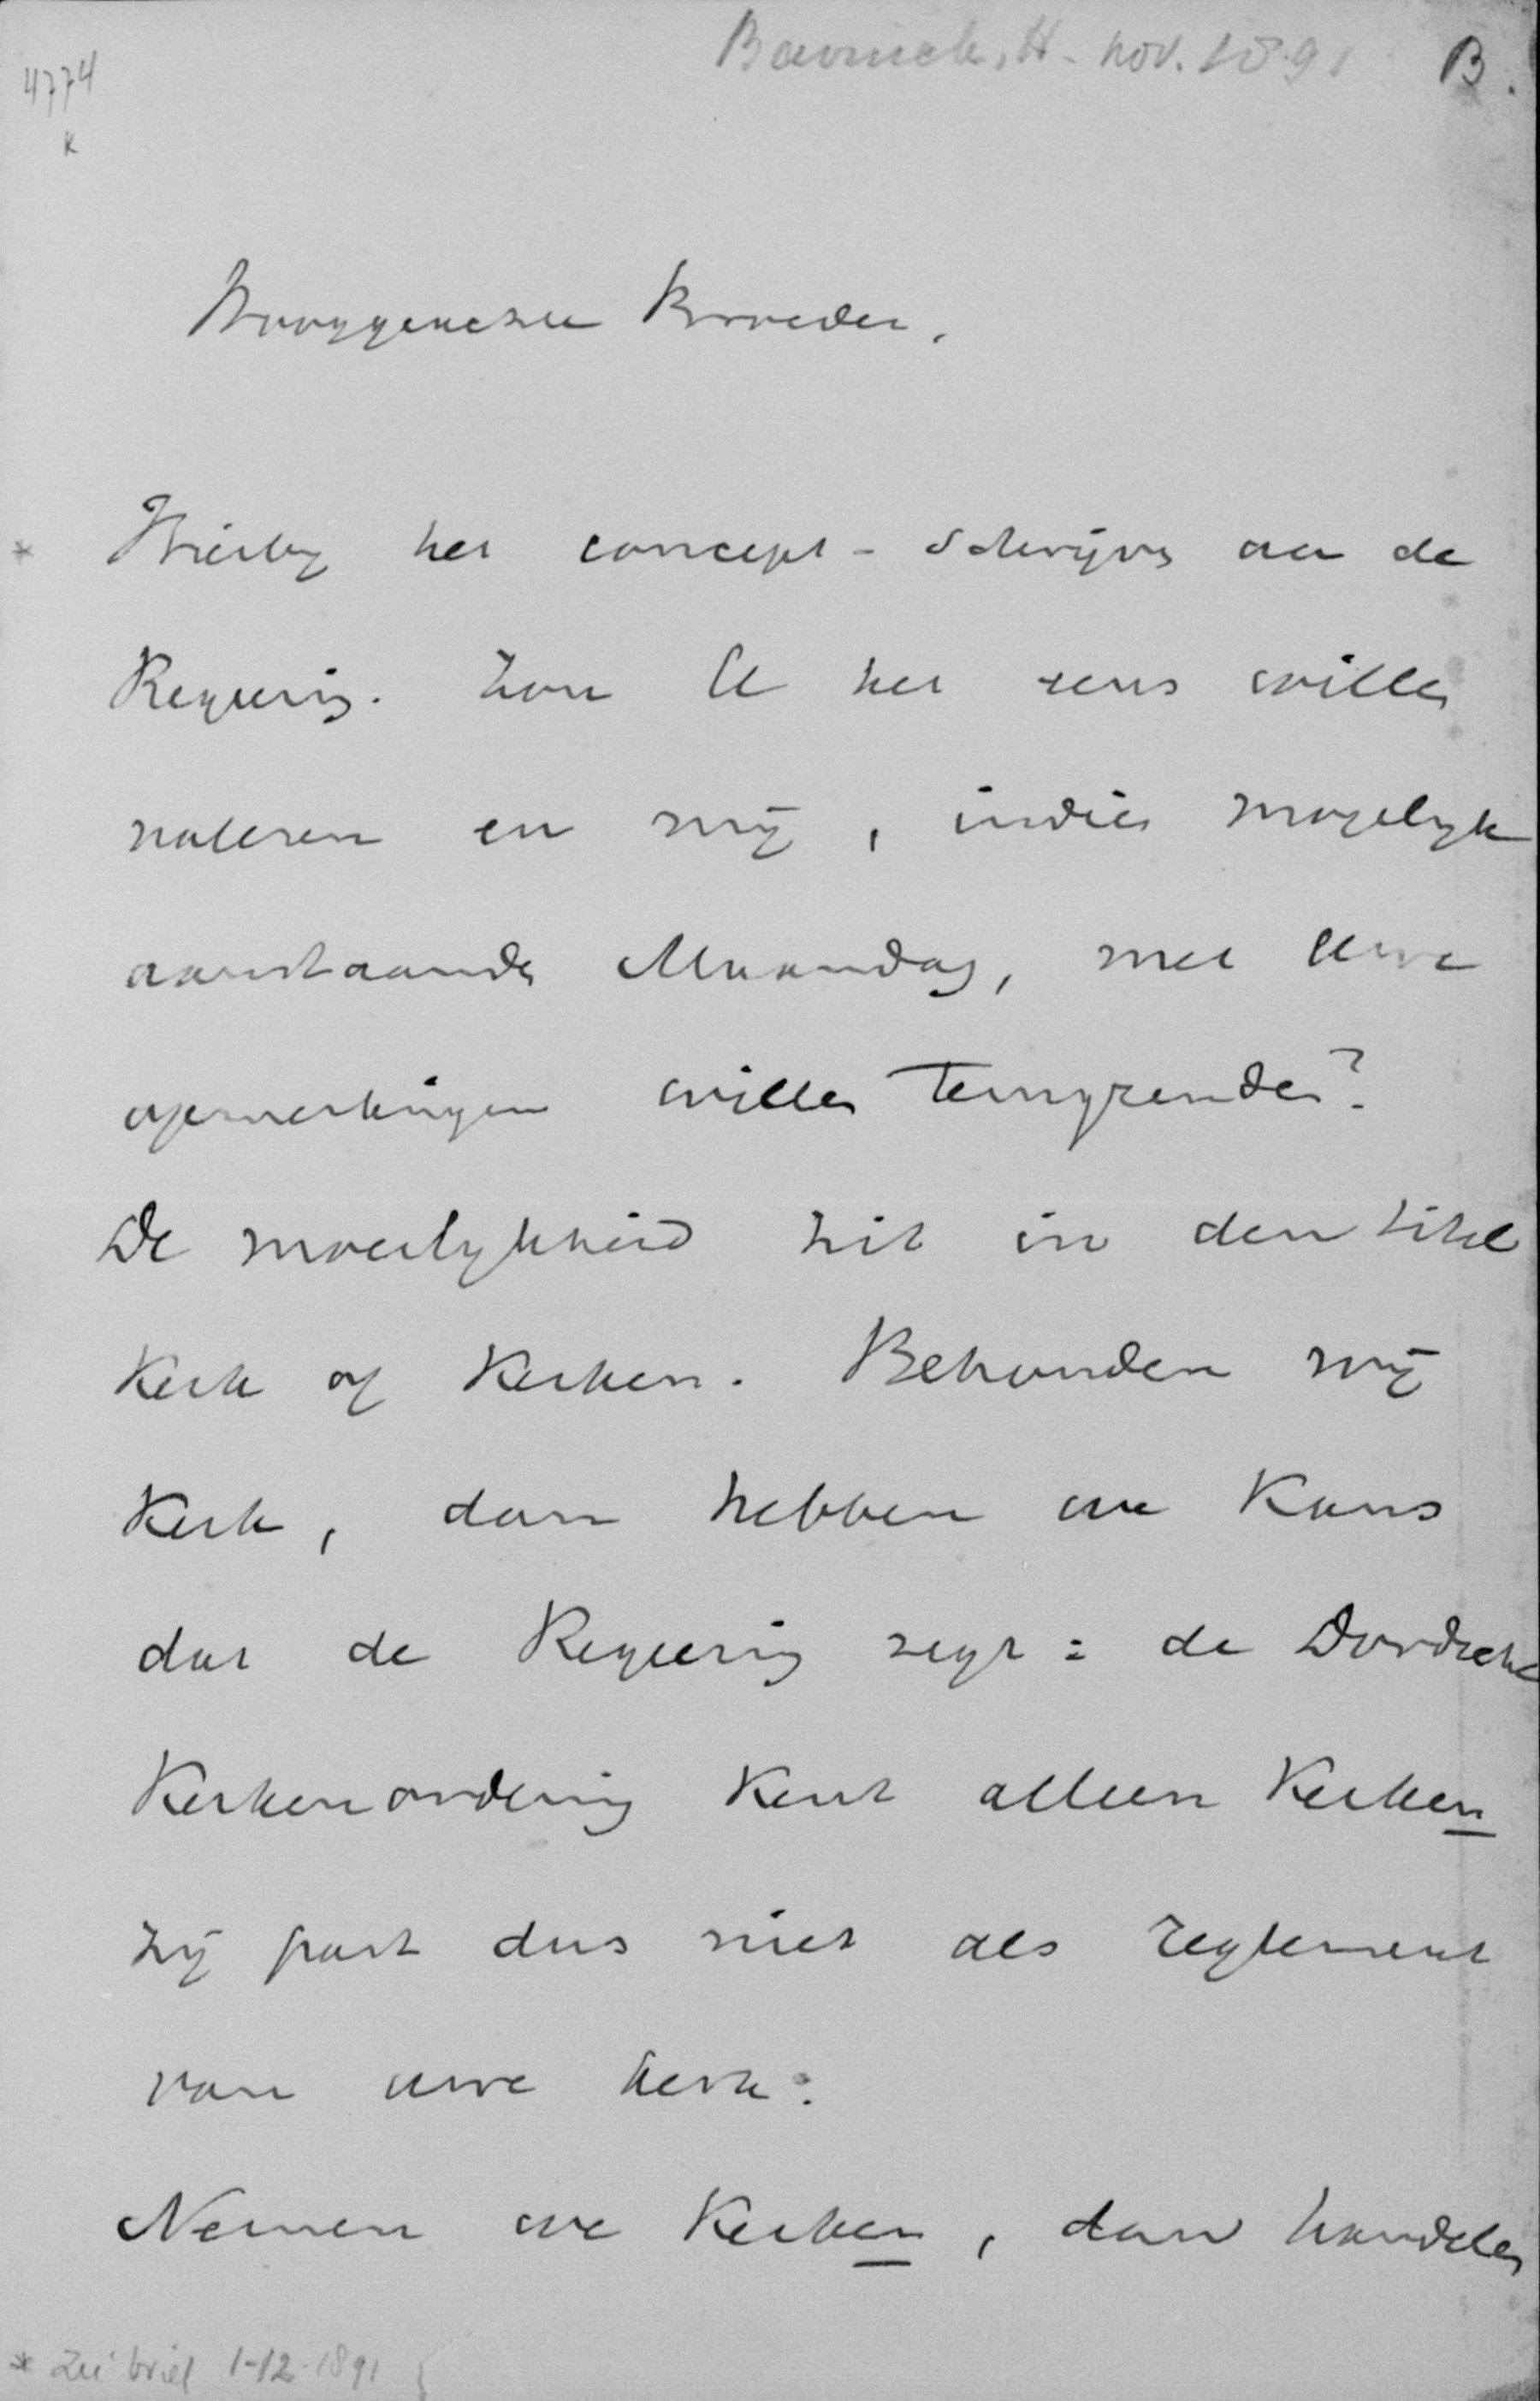 Bavinck, H. nov. 1891 B.
4774
K
Hooggeachte Broeder,
* Hierby het concept-schrijven aan de
Regeering. Zou U het eens willen
nalezen en mij, indien mogelyk
aanstaande Maandag, met Uwe
opmerkingen willen terugzenden?
De moeilykheid zit in den titel
Kerk of Kerken. Behouden wij
Kerk, dan hebben we kans
dat de Regeering zegt: de Dordsche
Kerkenordening kent alleen Kerken
zij past dus niet als reglement
van uwe kerk.
Nemen we Kerken, dan handelen
* Zie brief 1-12-1891